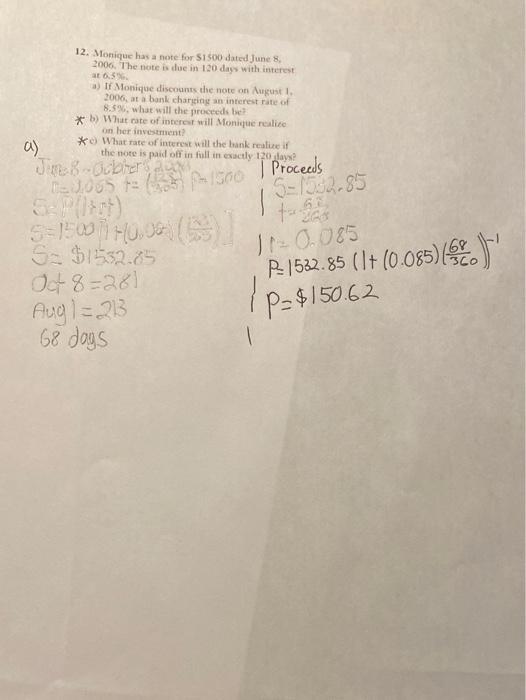 12. Monique has a note for $1500 dated June 8,
2006. The note is due in 120 days with interest
at 6.5%.
a) If Monique discounts the note on August 1,
2006, at a bank charging an interest rate of
8.5%, what will the proceeds be?
* b) What rate of interest will Monique realize
on her investment?
* c) What rate of interest will the bank realize if
the note is paid off in full in exactly 120 days?
a)
June 8 - October 8
r=0.065 t= P=1500
S=P(1+rt)
S=1500[1+(0.065)
S= $1532.85
Oct 8=281
Aug 1=213
68 days
Proceeds
S=1532.85
t= 68
r= 0.085
P= 1532.85 (1+(0.085)(68/360))^-1
P=$150.62